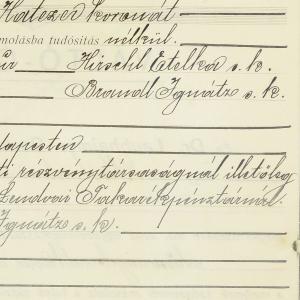 Hatezer koronát
molásba tudósítás nélkül.
úr Hirschl Etelka s. k.
Brandl Ignátz s. k.
dapesten
ti részvénytársaságnál illetőleg
Lendvai Takarékpénztárnál.
Ignátz s. k.